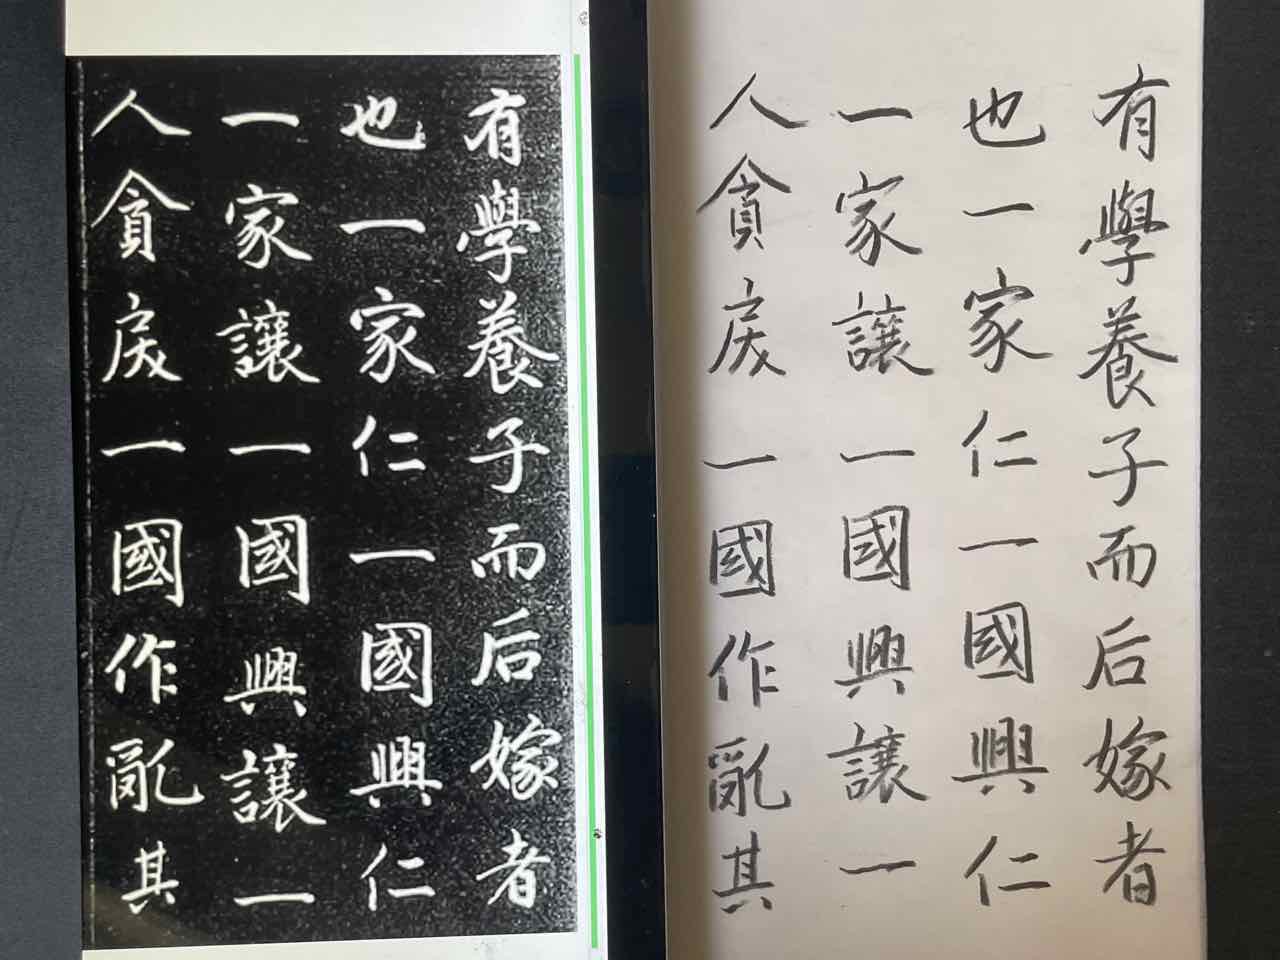 有學養子而后嫁者
也一家仁一國興仁
一家讓一國興讓一
人貪戾一國作亂其
有學養子而后嫁者
也一家仁一國興仁
一家讓一國興讓一
人貪戾一國作亂其